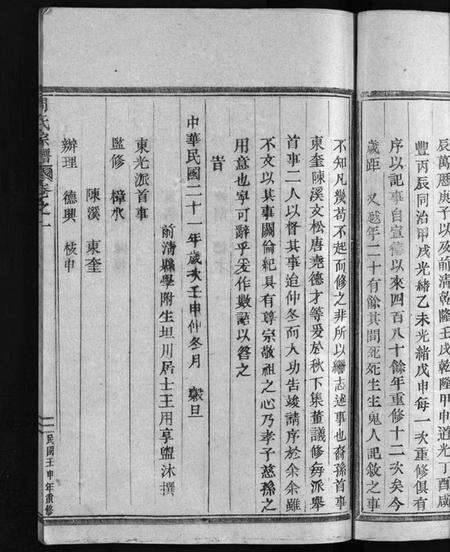 辰萬歷庚子以及前清乾隆壬戌乾隆甲申道光丁酉咸
豐丙辰同治甲戌光緒乙未光緒戊申每一次重修俱有
序以記事自宣修以來四百八十餘年重修十二次矣今
歲距又越年二十有餘其間死死生生鬼人記敘之事
不知凡幾苟不起而修之非所以繼志述事也裔孫首事
東奎陳溪文松唐堯德才等爰於秋下集董議修每派舉
首事二人以督其事迨仲冬而大功告竣請序於余余雖
不文以其事關倫紀具有尊宗敬祖之心乃孝子慈孫之
用意也寧可辭乎爰作數語以答之
旹
中華民國二十一年歲次壬申仲冬月 穀旦
前清縣學附生坦川居士王用享盥沐撰
東光派首事
監修 樟水
陳溪 東奎
辦理 德興 枝申
氏宗譜 卷之一
民國壬申年重修